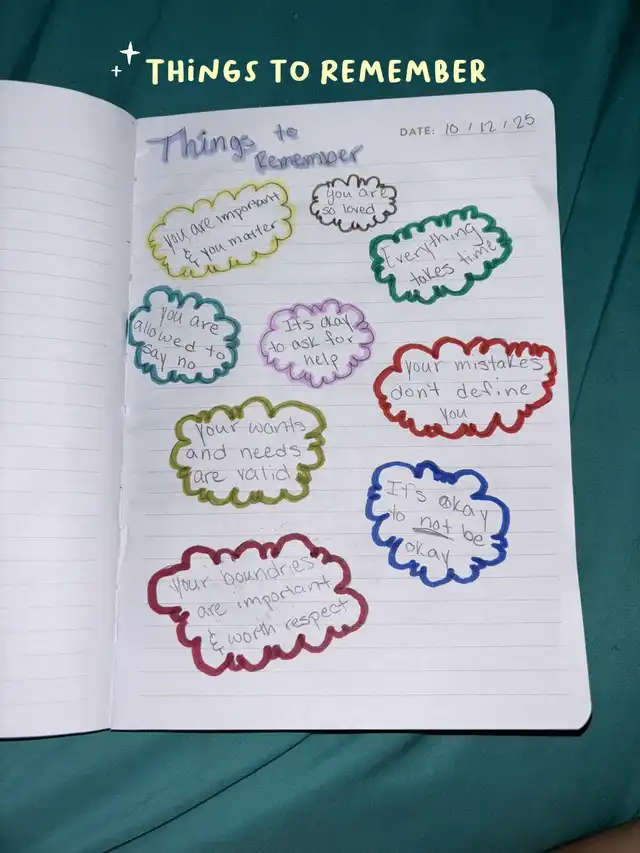 THINGS TO REMEMBER
Things to
Remember
DATE: 10 / 12 / 25
you are important
& you matter
you are
so loved
Everything
takes time
you are
allowed to
say no
It's okay
to ask for
help
your mistakes
don't define
you
your wants
and needs
are valid
It's okay
to not be
okay
your boundries
are important
& worth respect